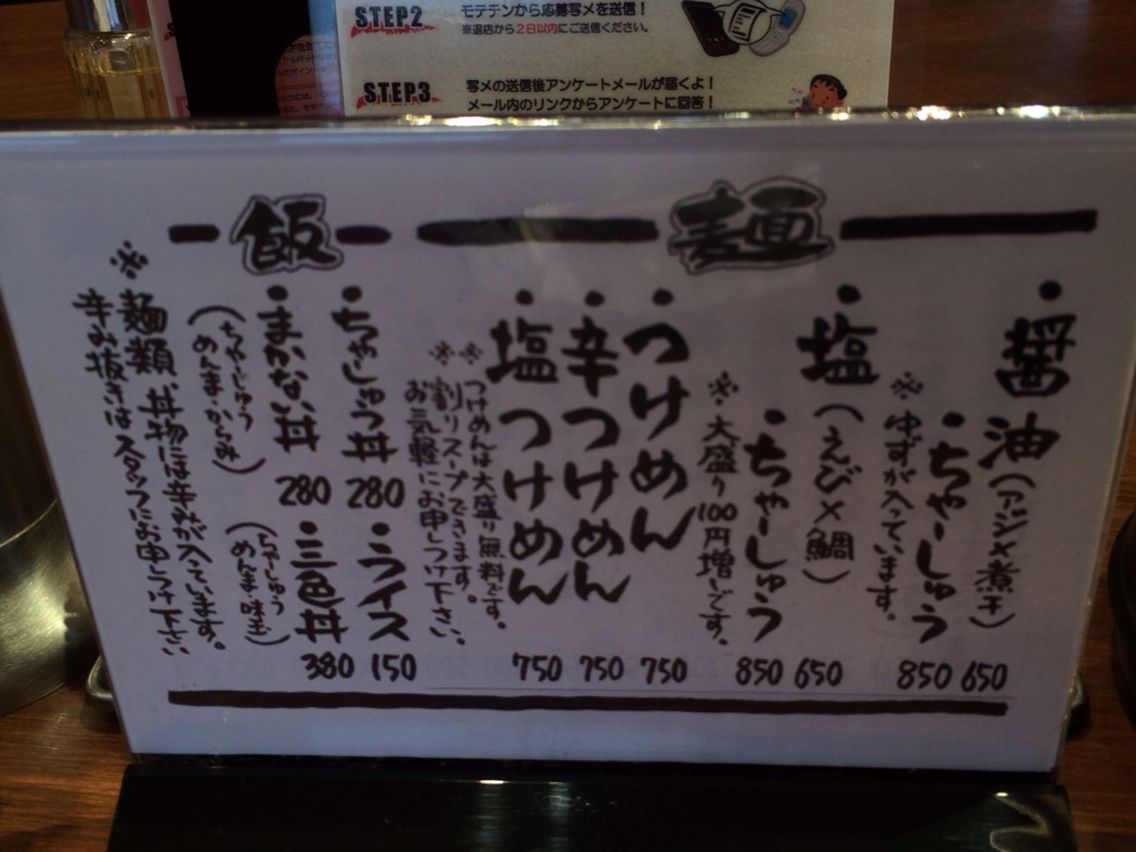 STEP2
モテテンから応募写メを送信！
※退店から2日以内にご送信ください。
STEP3
写メの送信後アンケートメールが届くよ！
メール内のリンクからアンケートに回答！
麺
・醤油（アジ×煮干）650
・ちゃーしゅう 850
※ゆずが入っています。
・塩（えび×鯛）650
・ちゃーしゅう 850
※大盛り100円増しです。
・つけめん 750
・辛つけめん 750
・塩つけめん 750
※つけめんは大盛り無料です。
※割りスープできます。
お気軽にお申しつけ下さい。
飯
・ちゃーしゅう丼 280
・ライス 150
・まかない丼 280
（ちゃーしゅう
めんま・からみ）
・三色丼 380
（ちゃーしゅう
めんま・味玉）
※麺類、丼物には辛みが入っています。
辛み抜きはスタッフにお申しつけ下さい